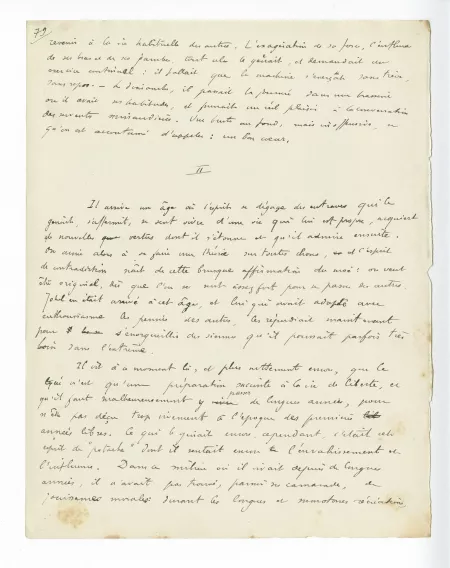 79
revenir à la vie habituelle des autres. L'exagération de sa force, l'enflure
de ses bras et de ses jambes, tout cela le gênait, et demandait un
exercice continuel : il fallait que la machine s'exerçât sans trêve,
sans repos. — Le dimanche, il passait la journée dans une brasserie
où il avait ses habitudes, et prenait un vif plaisir à la conversation
des servantes. Une brute au fond, mais inoffensive, ce
qu'on est accoutumé d'appeler : un bon cœur.
II
Il arrive un âge où l'esprit se dégage des entraves qui le
gênent, s'affermit, se sent vivre d'une vie qui lui est propre, acquiert
de nouvelles vertus dont il s'étonne et qu'il admire ensuite.
On arrive alors à se faire une théorie sur toutes choses, et l'esprit
de contradiction naît de cette brusque affirmation du moi : on veut
être original, dès que l'on se sent assez fort pour se passer des autres.
était arrivé à cet âge, et lui qui avait adopté avec
enthousiasme les pensées des autres, les répudiait maintenant
pour s'enorgueillir des siennes qu'il poussait parfois très
loin dans l'extrême.
Il vit à ce moment là, et plus nettement encore, que le
lycée n'est qu'une préparation à la vie de liberté, et
qu'il faut malheureusement y passer de longues années, pour
n'être pas déçu trop vivement à l'époque des premières
années libres. Ce qui le gênait encore, cependant, c'était cet
esprit de potache dont il sentait encore l'envahissement et
l'influence. Dans ce milieu où il vivait depuis de longues
années, il n'avait pas trouvé, parmi ses camarades, de
jouissances morales durant les longues et monotones récréations